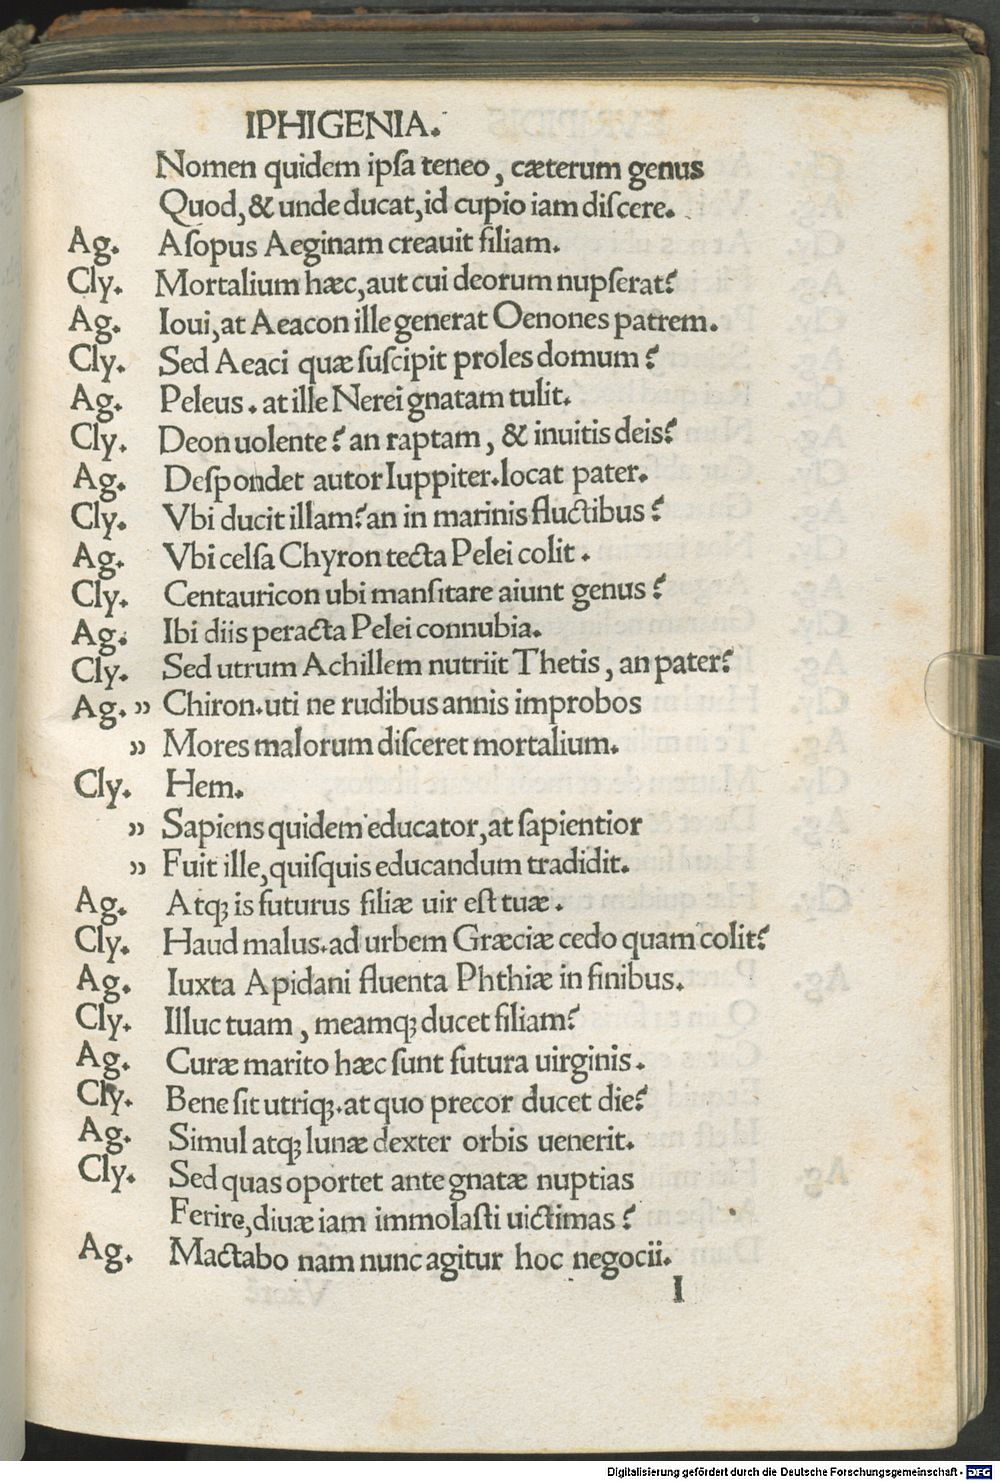 IPHIGENIA.
Nomen quidem ipſa teneo, cæterum genus
Quod, & unde ducat, id cupio iam diſcere.
Ag. Aſopus Aeginam creauit filiam.
Cly. Mortalium hæc, aut cui deorum nupſerat?
Ag. Ioui, at Aeacon ille generat Oenones patrem.
Cly. Sed Aeaci quæ ſuſcipit proles domum?
Ag. Peleus. at ille Nerei gnatam tulit.
Cly. Deon uolente? an raptam, & inuitis deis?
Ag. Deſpondet autor Iuppiter. locat pater.
Cly. Vbi ducit illam? an in marinis fluctibus?
Ag. Vbi celſa Chyron tecta Pelei colit.
Cly. Centauricon ubi manſitare aiunt genus?
Ag. Ibi diis peracta Pelei connubia.
Cly. Sed utrum Achillem nutriit Thetis, an pater?
Ag. » Chiron. uti ne rudibus annis improbos
» Mores malorum diſceret mortalium.
Cly. Hem.
» Sapiens quidem educator, at ſapientior
» Fuit ille, quiſquis educandum tradidit.
Ag. Atq; is futurus filiæ uir eſt tuæ.
Cly. Haud malus. ad urbem Græciæ cedo quam colit?
Ag. Iuxta Apidani fluenta Phthiæ in finibus.
Cly. Illuc tuam, meamq; ducet filiam?
Ag. Curæ marito hæc ſunt futura uirginis.
Cly. Bene ſit utriq;. at quo precor ducet die?
Ag. Simul atq; lunæ dexter orbis uenerit.
Cly. Sed quas oportet ante gnatæ nuptias
Ferire, diuæ iam immolaſti uictimas?
Ag. Mactabo nam nunc agitur hoc negocii.
I
Digitalisierung gefördert durch die Deutsche Forschungsgemeinschaft - DFG